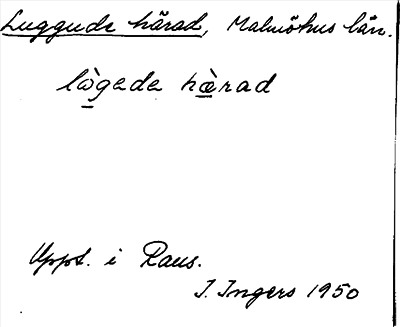 Luggude härad, Malmöhus län.
lògede hæ̀rad
Uppt. i Raus.
I. Ingers 1950